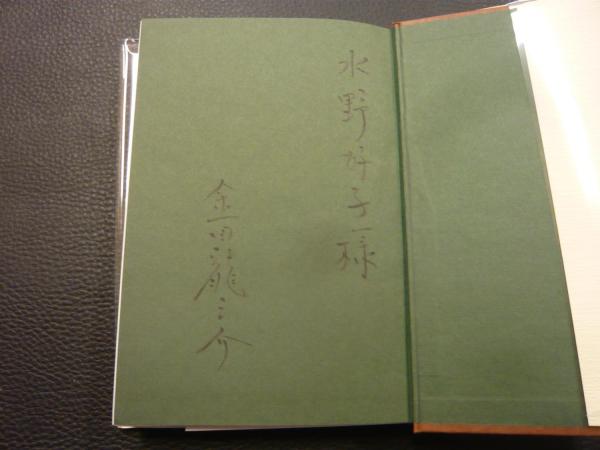 水野好子様
金田龍之介